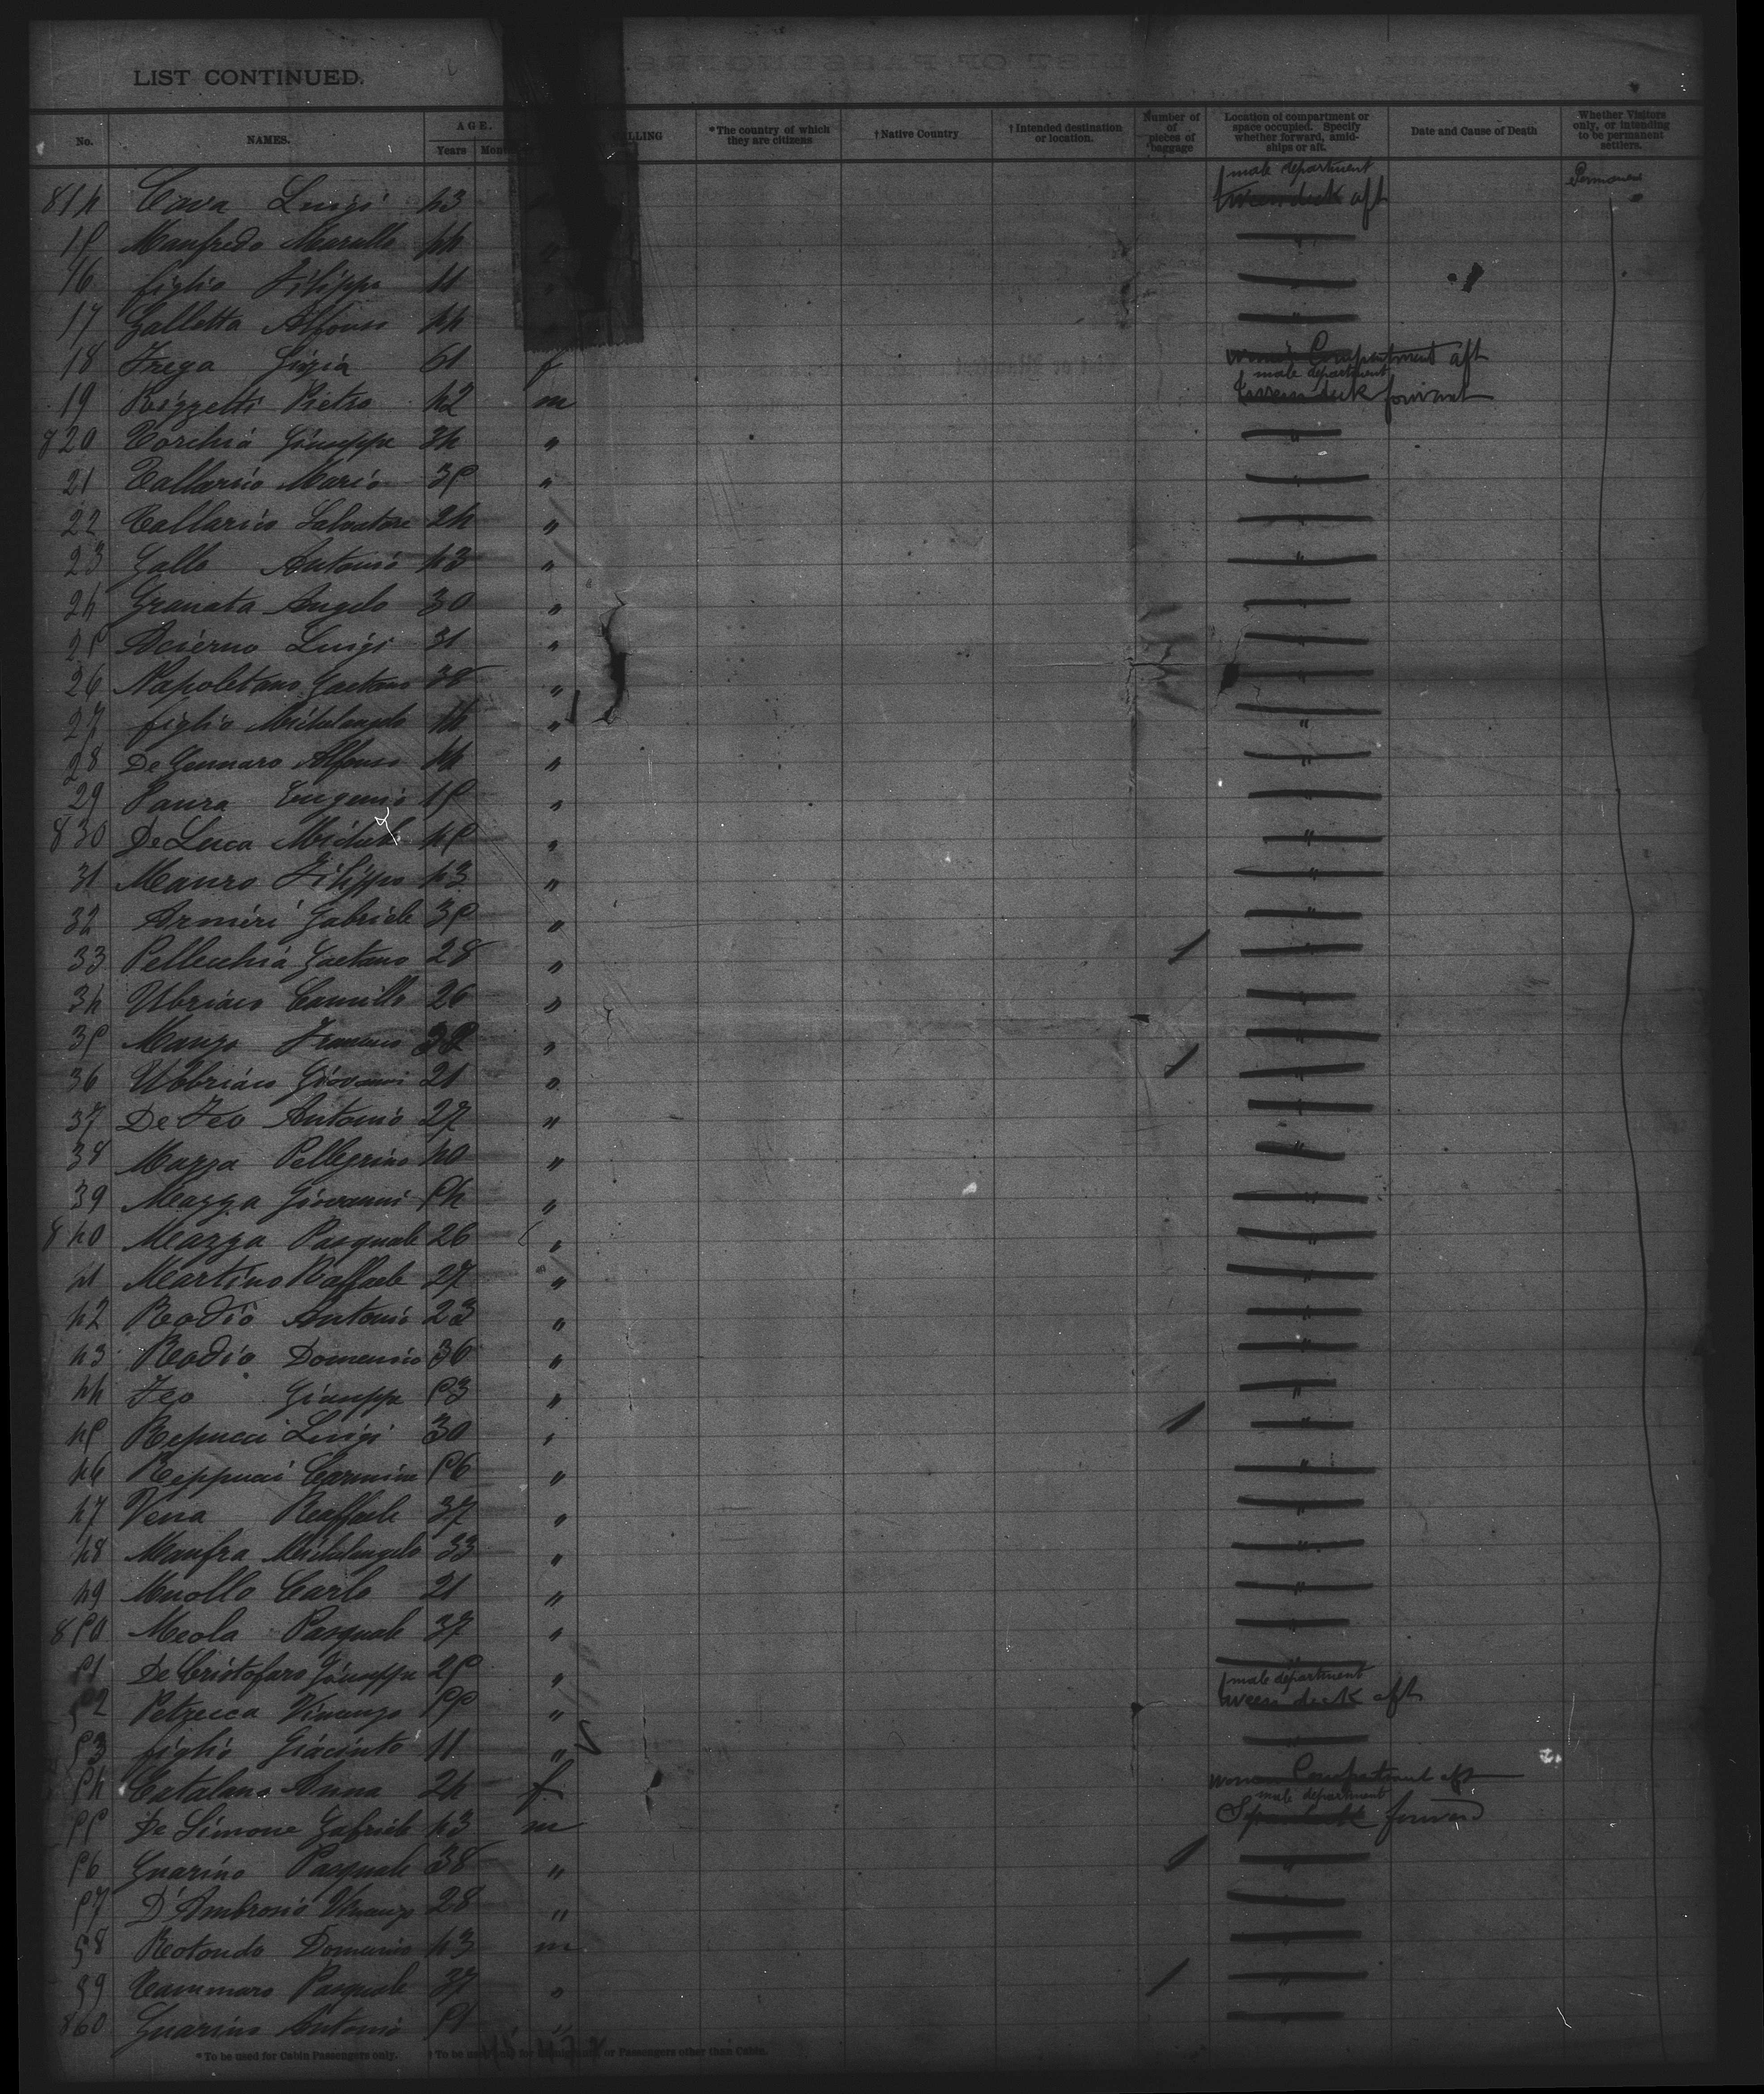 LIST CONTINUED.
No. NAMES. AGE. Years LLING *The country of which they are citizens †Native Country †Intended destination or location. Number of of pieces of baggage Location of compartment or space occupied. Specify whether forward, amidships or aft. Date and Cause of Death Whether Visitors only, or intending to be permanent settlers.
male department
814 Cava Luigi 43 tween deck aft Permanent
15 Manfredo 44 "
16 figlio Filippo 11 "
17 Galletta Alfonso 44 "
18 Frega 61 f Compartment aft
male department
19 Rizzetti Pietro 42 m tween deck forward
820 Torchia Giuseppe 34 " "
21 Mario 35 " "
22 Salvatore 24 " "
23 Gallo Antonio 43 " "
24 Granata Angelo 30 " "
25 Acierno Luigi 31 " "
26 Napoletano Gaetano 38 " "
27 figlio Michelangelo 14 " "
28 De Gennaro Alfonso 44 " "
29 Paura Eugenio 15 " "
830 De Luca Michele 45 " "
31 Mauro Filippo 43 " "
32 Armiri Gabriele 35 " "
33 Pellecchia Gaetano 28 " "
34 Ubriaco Camillo 26 " "
35 Manzo Francesco " "
36 Ubbriaco Giovanni 21 " "
37 De Feo Antonio 27 " "
38 Mazza Pellegrino 40 " "
39 Mazza Giovanni 54 " "
840 Mazza Pasquale 26 " "
41 Martino Raffaele 27 " "
42 Rodio Antonio 23 " "
43 Rodio Domenico 36 " "
44 Feo Giuseppe 53 " "
45 Repucci Luigi 30 " "
46 Reppucci Carmine 56 " "
47 Vena Raffaele 37 " "
48 Manfra Michelangelo 33 " "
49 Muollo Carlo 21 " "
850 Meola Pasquale 37 " "
51 De Cristofaro Giuseppe 25 "
male department
52 Petrecca Vincenzo 55 " tween deck aft
53 figlio Giacinto 11 " "
54 Catalano Anna 24 f women Compartment aft
male department
55 De Simone Gabriele 43 m forward
56 Guarino Pasquale 38 " "
57 D'Ambrosio Vincenzo 28 " "
58 Rotondo Domenico 43 m "
59 Cammaro Pasquale 37 " "
860 Guarino Antonio 51 " "
*To be used for Cabin Passengers only. †To be used for or Passengers other than Cabin.